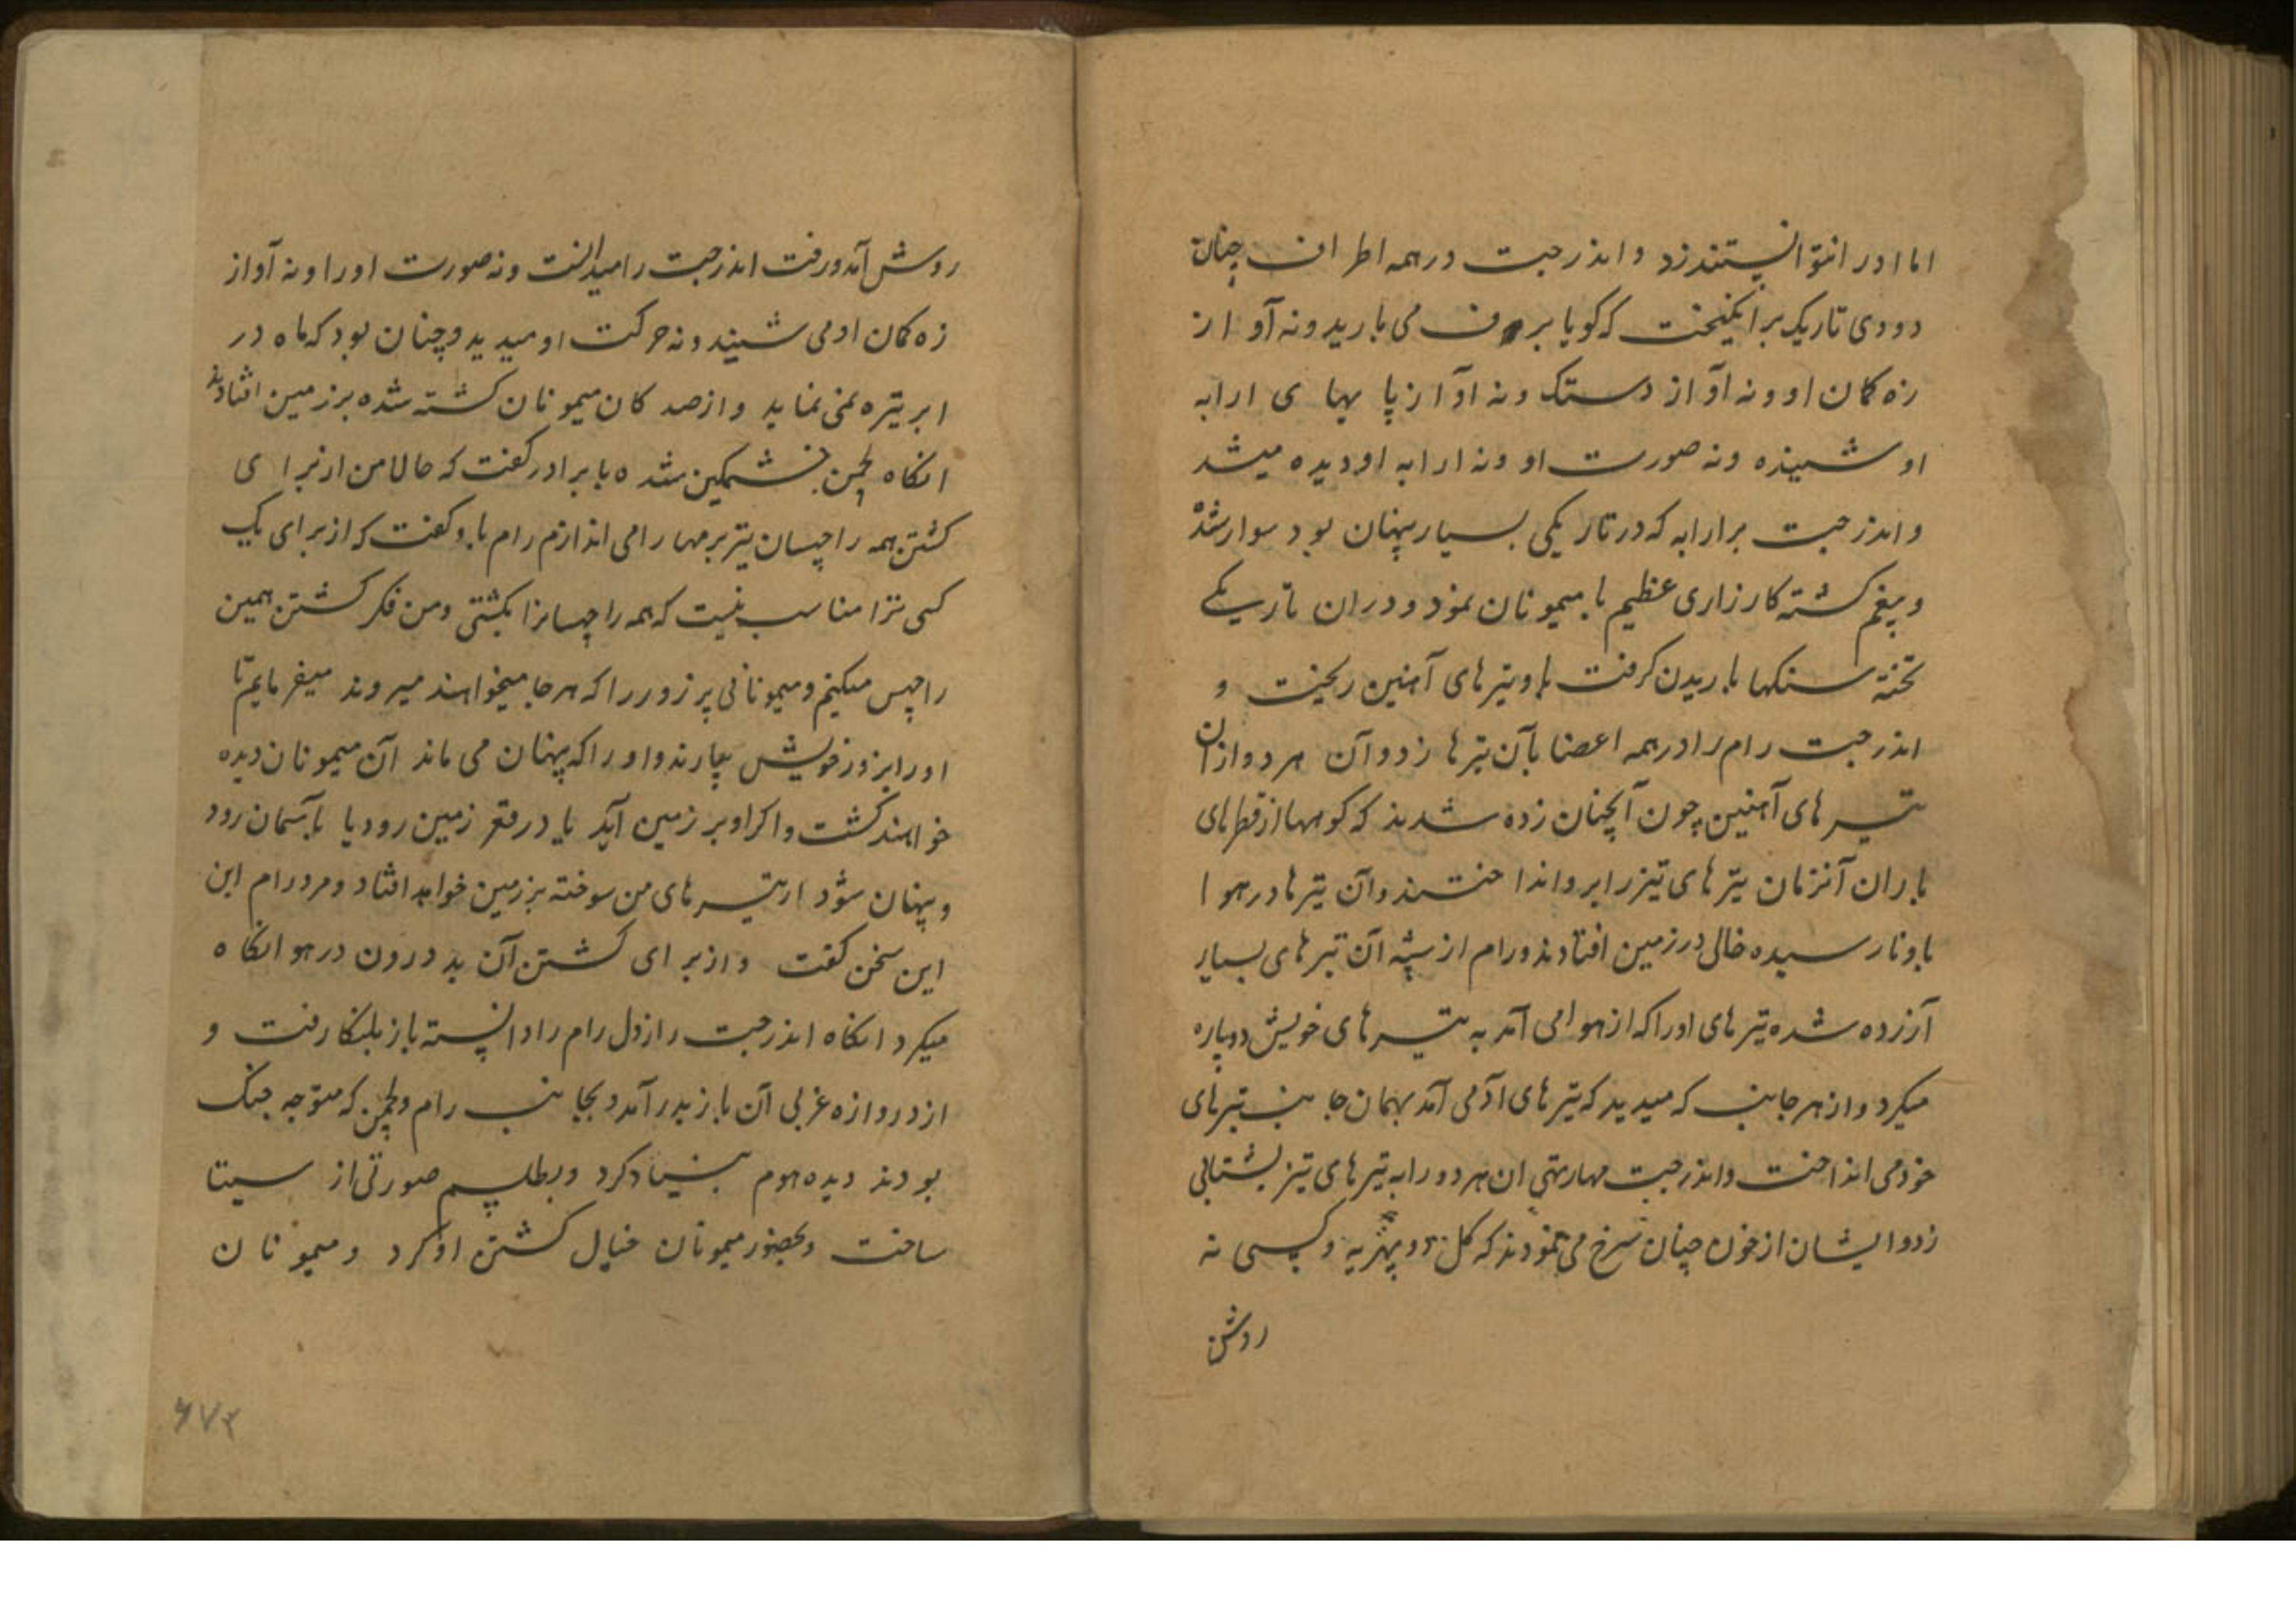 اما او را نتوانستند زد و اندرجیت در همه اطراف چنان
دودی تاریک برانگیخت که کویا برف می بارید و نه آواز
زه کمان او و نه آواز دستک و نه آواز پا یهای ارابه
او شنیده و نه صورت او و نه ارابه او دیده میشد
و اندرجیت بر ارابه که در تاریکی بسیار پنهان بود سوار شده
و بیغم کشته کارزاری عظیم با میمونان نمود و دران تاریکی
تخته سنکها باریدن کرفت و تیرهای آهنین ریخت و
اندرجیت رام را در همه اعضا بآن تیرها زد و آن هر دو ازان
تیرهای آهنین چون آنچنان زده شدند که کوهها از قطرهای
باران آنزمان تیرهای تیز را برو انداختند و آن تیرها در هوا
باو نارسیده خالی در زمین افتادند و رام از آن تیرهای بسیار
آزرده شده تیرهای او را که از هوا می آمد به تیرهای خویش دوپاره
میکرد و از هر جانب که میدید که تیرهای آدمی آمد بهمان جانب تیرهای
خود می انداخت و اندرجیت مهارتهی ان هر دو را به تیرهای تیز بشتابی
زد و ایشان از خون چنان سرخ می نمودند که کل دوپهریه و کسی نه
روش
روش آمد و رفت اندرجیت را میدانست و نه صورت او را و نه آواز
زه کمان او می شنید و نه حرکت او میدید و چنان بود که ماه در
ابر تیره نمی نماید و از صد کان میمونان کشته شده بر زمین افتادند
انکاه لچمن خشمکین شده با برادر کفت که حالا من از برای
کشتن همه راچسان تیر برمها را می اندازم رام باو کفت که از برای یک
کسی ترا مناسب نیست که همه راچسانرا بکشتی و من فکر کشتن همین
راچس میکنم و میمونانی پر زور را که هر جا میخواهند میروند میفرمایم تا
او را بزور خویش بیارند و او را که پنهان می ماند آن میمونان دیده
خواهند کشت و اکر او بر زمین آید یا در قعر زمین رود یا بآسمان رود
و پنهان شود از تیرهای من سوخته بر زمین خواهد افتاد و مرد رام این
این سخن کفت و از برای کشتن آن بد درون در هوا نکاه
میکرد انکاه اندرجیت راز دل رام را دانسته باز بلنکا رفت و
از دروازه غربی آن باز بدر آمد و بجانب رام و لچمن که متوجه جنک
بودند دیده هوم بنیاد کرد و بطلسم صورتی از سیتا
ساخت و بحضور میمونان خیال کشتن او کرد و میمونان
۶۷۳